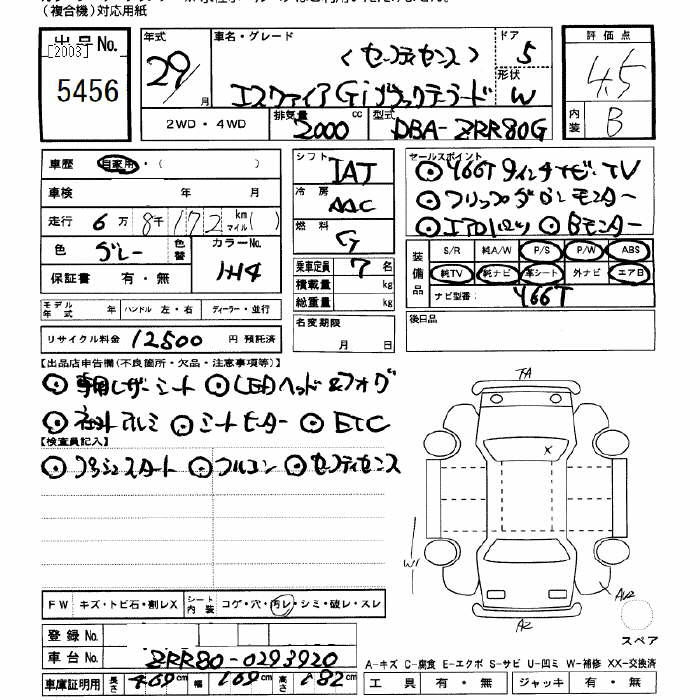 (複合機)対応用紙
出品No.
[2003]
5456
年式
29/
月
車名・グレード
(セーフティセンス)
エスクァイア Gi ブラックテーラード
ドア
5
形状
W
2WD・4WD
排気量
2000 cc
型式
DBA-ZRR80G
評価点
4.5
内装
B
車歴 自家用・( )
車検 年 月
走行 6万 8千 172 km マイル ( )
色 グレー
色替
カラーNo.
1H4
保証書 有・無
シフト
IAT
冷房
AAC
燃料
G
乗車定員 7 名
積載量 kg
総重量 kg
名変期限
月 日
セールスポイント
⊙ Y66T 9インチナビ・TV
⊙ フリップダウンモニター
⊙ エアロパーツ ⊙ Bモニター
装備品
S/R 純A/W P/S P/W ABS
純TV 純ナビ 革シート 外ナビ エアB
ナビ型番: Y66T
後日品
モデル年式 年 ハンドル 左・右 ディーラー・並行
リサイクル料金 12500 円 預託済
【出品店申告欄(不良箇所・欠品・注意事項等)】
⊙ 専用レザーシート ⊙ LEDヘッド&フォグ
⊙ 社外アルミ ⊙ シートヒーター ⊙ ETC
【検査員記入】
⊙ プッシュスタート ⊙ フルコン ⊙ セーフティセンス
FW キズ・トビ石・割レX
シート内装 コゲ・穴・汚レ・シミ・破レ・スレ
登録No.
車台No. ZRR80-0293920
車庫証明用 長さ 469cm 幅 169cm 高さ 182cm
A-キズ C-腐食 E-エクボ S-サビ U-凹ミ W-補修 XX-交換済
工具 有・無 ジャッキ 有・無
スペア
X
W1
A2